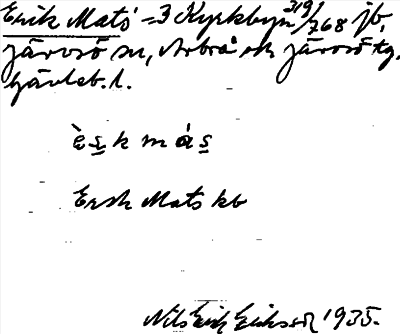 Erik Mats' =3 Kyrkbyn 319/768 jb,
Järvsö sn, Arbrå och Järvsö tg,
Gävleb. l.
è s̲ k m á s̲
Ersk Mats kb
Nils Erik Eriksson 1935.